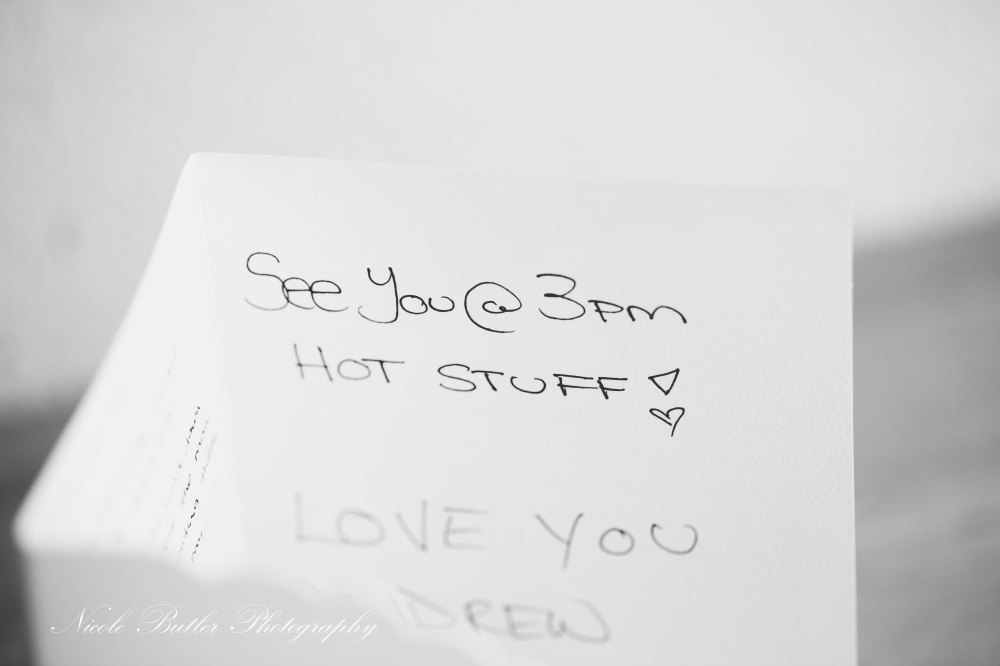 See You @ 3pm
HOT STUFF !
LOVE YOU
Nicole Butler Photography